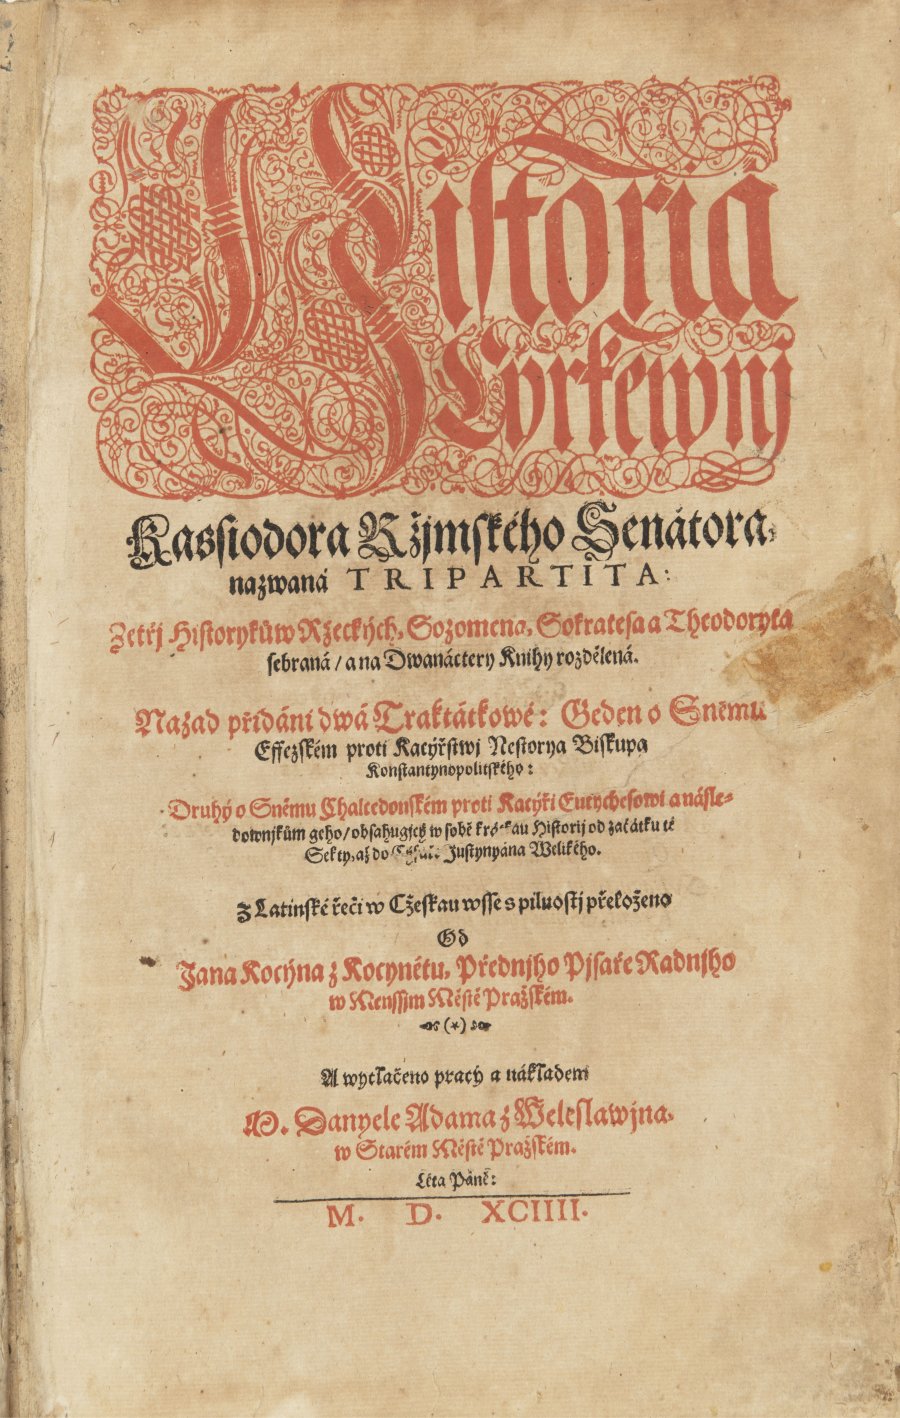 Historia
Cyrkewnj
Kassiodora Ržjmského Senátora,
nazwaná TRIPARTITA:
Zetřj Historykůw Ržeckých, Sozomena, Sokratesa a Theodoryta
sebraná / a na Dwanáctery Knihy rozdělená.
Nazad přidáni dwá Traktátkowé: Geden o Sněmu
Effezském proti Kacýřstwj Nestorya Biskupa
Konstantynopolitského:
Druhý o Sněmu Chalcedonském proti Kacýři Eutychesowi a násle-
downjkům geho / obsahugjcý w sobě krátkau Historij od začátku té
Sekty, až do Justynyána Welikého.
Z Latinské řeči w Cžeskau wsse s pilnostj přeloženo
Od
Jana Kocýna z Kocynétu, Přednjho Pjsaře Radnjho
w Menssjm Městě Pražském.
(*)
A wytlačeno pracý a nákladem
M. Danyele Adama z Weleslawjna,
w Starém Městě Pražském.
Léta Páně:
M. D. XCIIII.